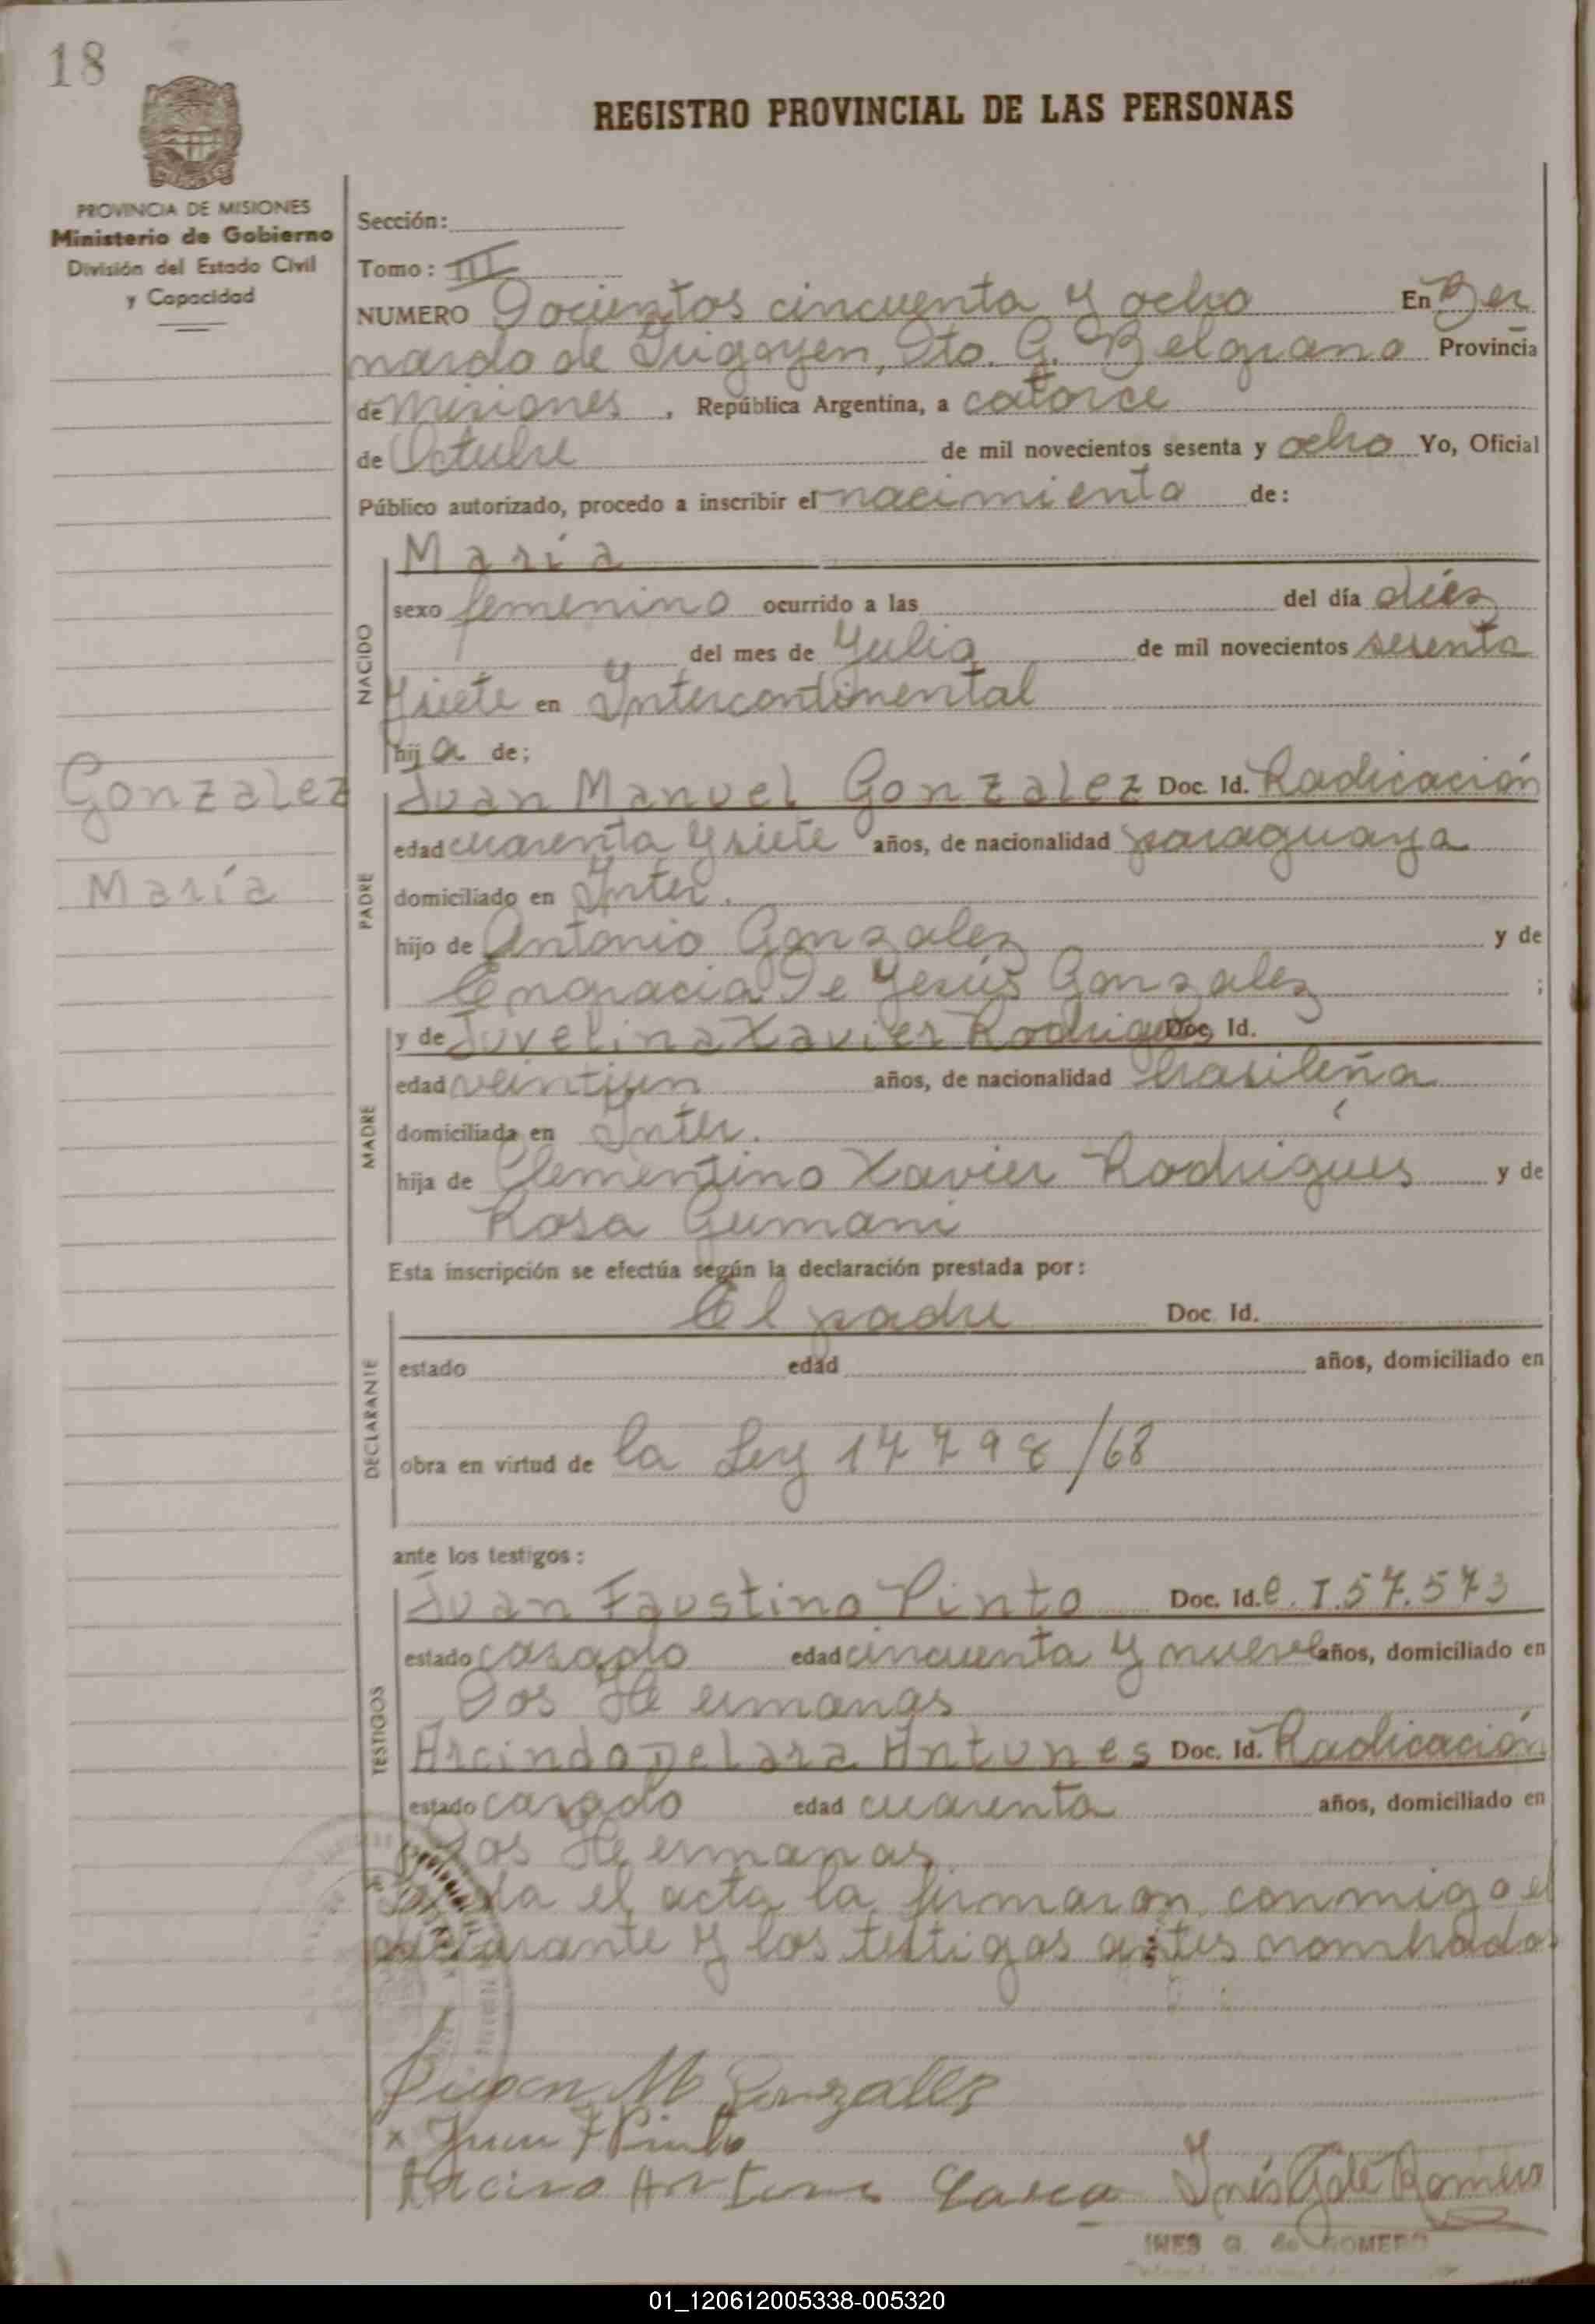 18
REGISTRO PROVINCIAL DE LAS PERSONAS
PROVINCIA DE MISIONES
Ministerio de Gobierno
División del Estado Civil
y Capacidad
Sección:
Tomo: III
NUMERO Docientos cincuenta y ocho En Ber
nardo de Irigoyen, Dto. G. Belgrano Provincia
de Misiones, República Argentina, a catorce
de Octubre de mil novecientos sesenta y ocho Yo, Oficial
Público autorizado, procedo a inscribir el nacimiento de:
NACIDO
María
sexo femenino ocurrido a las del día diés
del mes de Julio de mil novecientos sesenta
y siete en Intercontinental
hija de;
Gonzalez
María
PADRE
Juan Manuel Gonzalez Doc. Id. Radicación
edad cuarenta y siete años, de nacionalidad paraguaya
domiciliado en Inter.
hijo de Antonio Gonzalez y de
Engracia De Jesús Gonzalez ;
MADRE
y de Juvelina Xavier Rodrigues Doc. Id.
edad veintiun años, de nacionalidad brasileña
domiciliada en Inter.
hija de Clementino Xavier Rodrigues y de
Rosa Gumani
Esta inscripción se efectúa según la declaración prestada por:
DECLARANTE
El padre Doc. Id.
estado edad años, domiciliado en
obra en virtud de la Ley 17798/68
ante los testigos:
TESTIGOS
Juan Faustino Pinto Doc. Id. C.I.57.573
estado casado edad cincuenta y nueve años, domiciliado en
Dos Hermanas
Arcindo De lara Antunes Doc. Id. Radicación
estado casado edad cuarenta años, domiciliado en
Dos Hermanas
el acta la firmaron conmigo el
declarante y los testigos antes nombrados
Juan M Gonzalez
x Juan F Pinto
Inés G de Romero
INES G. de ROMERO
01_120612005338-005320